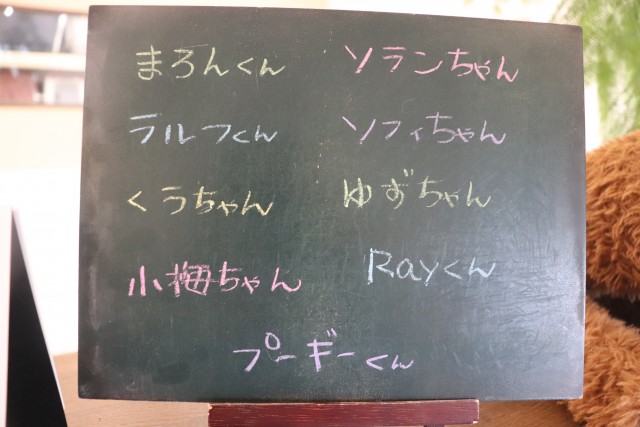 まろんくん ソランちゃん
ラルフくん ソフィちゃん
くうちゃん ゆずちゃん
小梅ちゃん Rayくん
プーギーくん